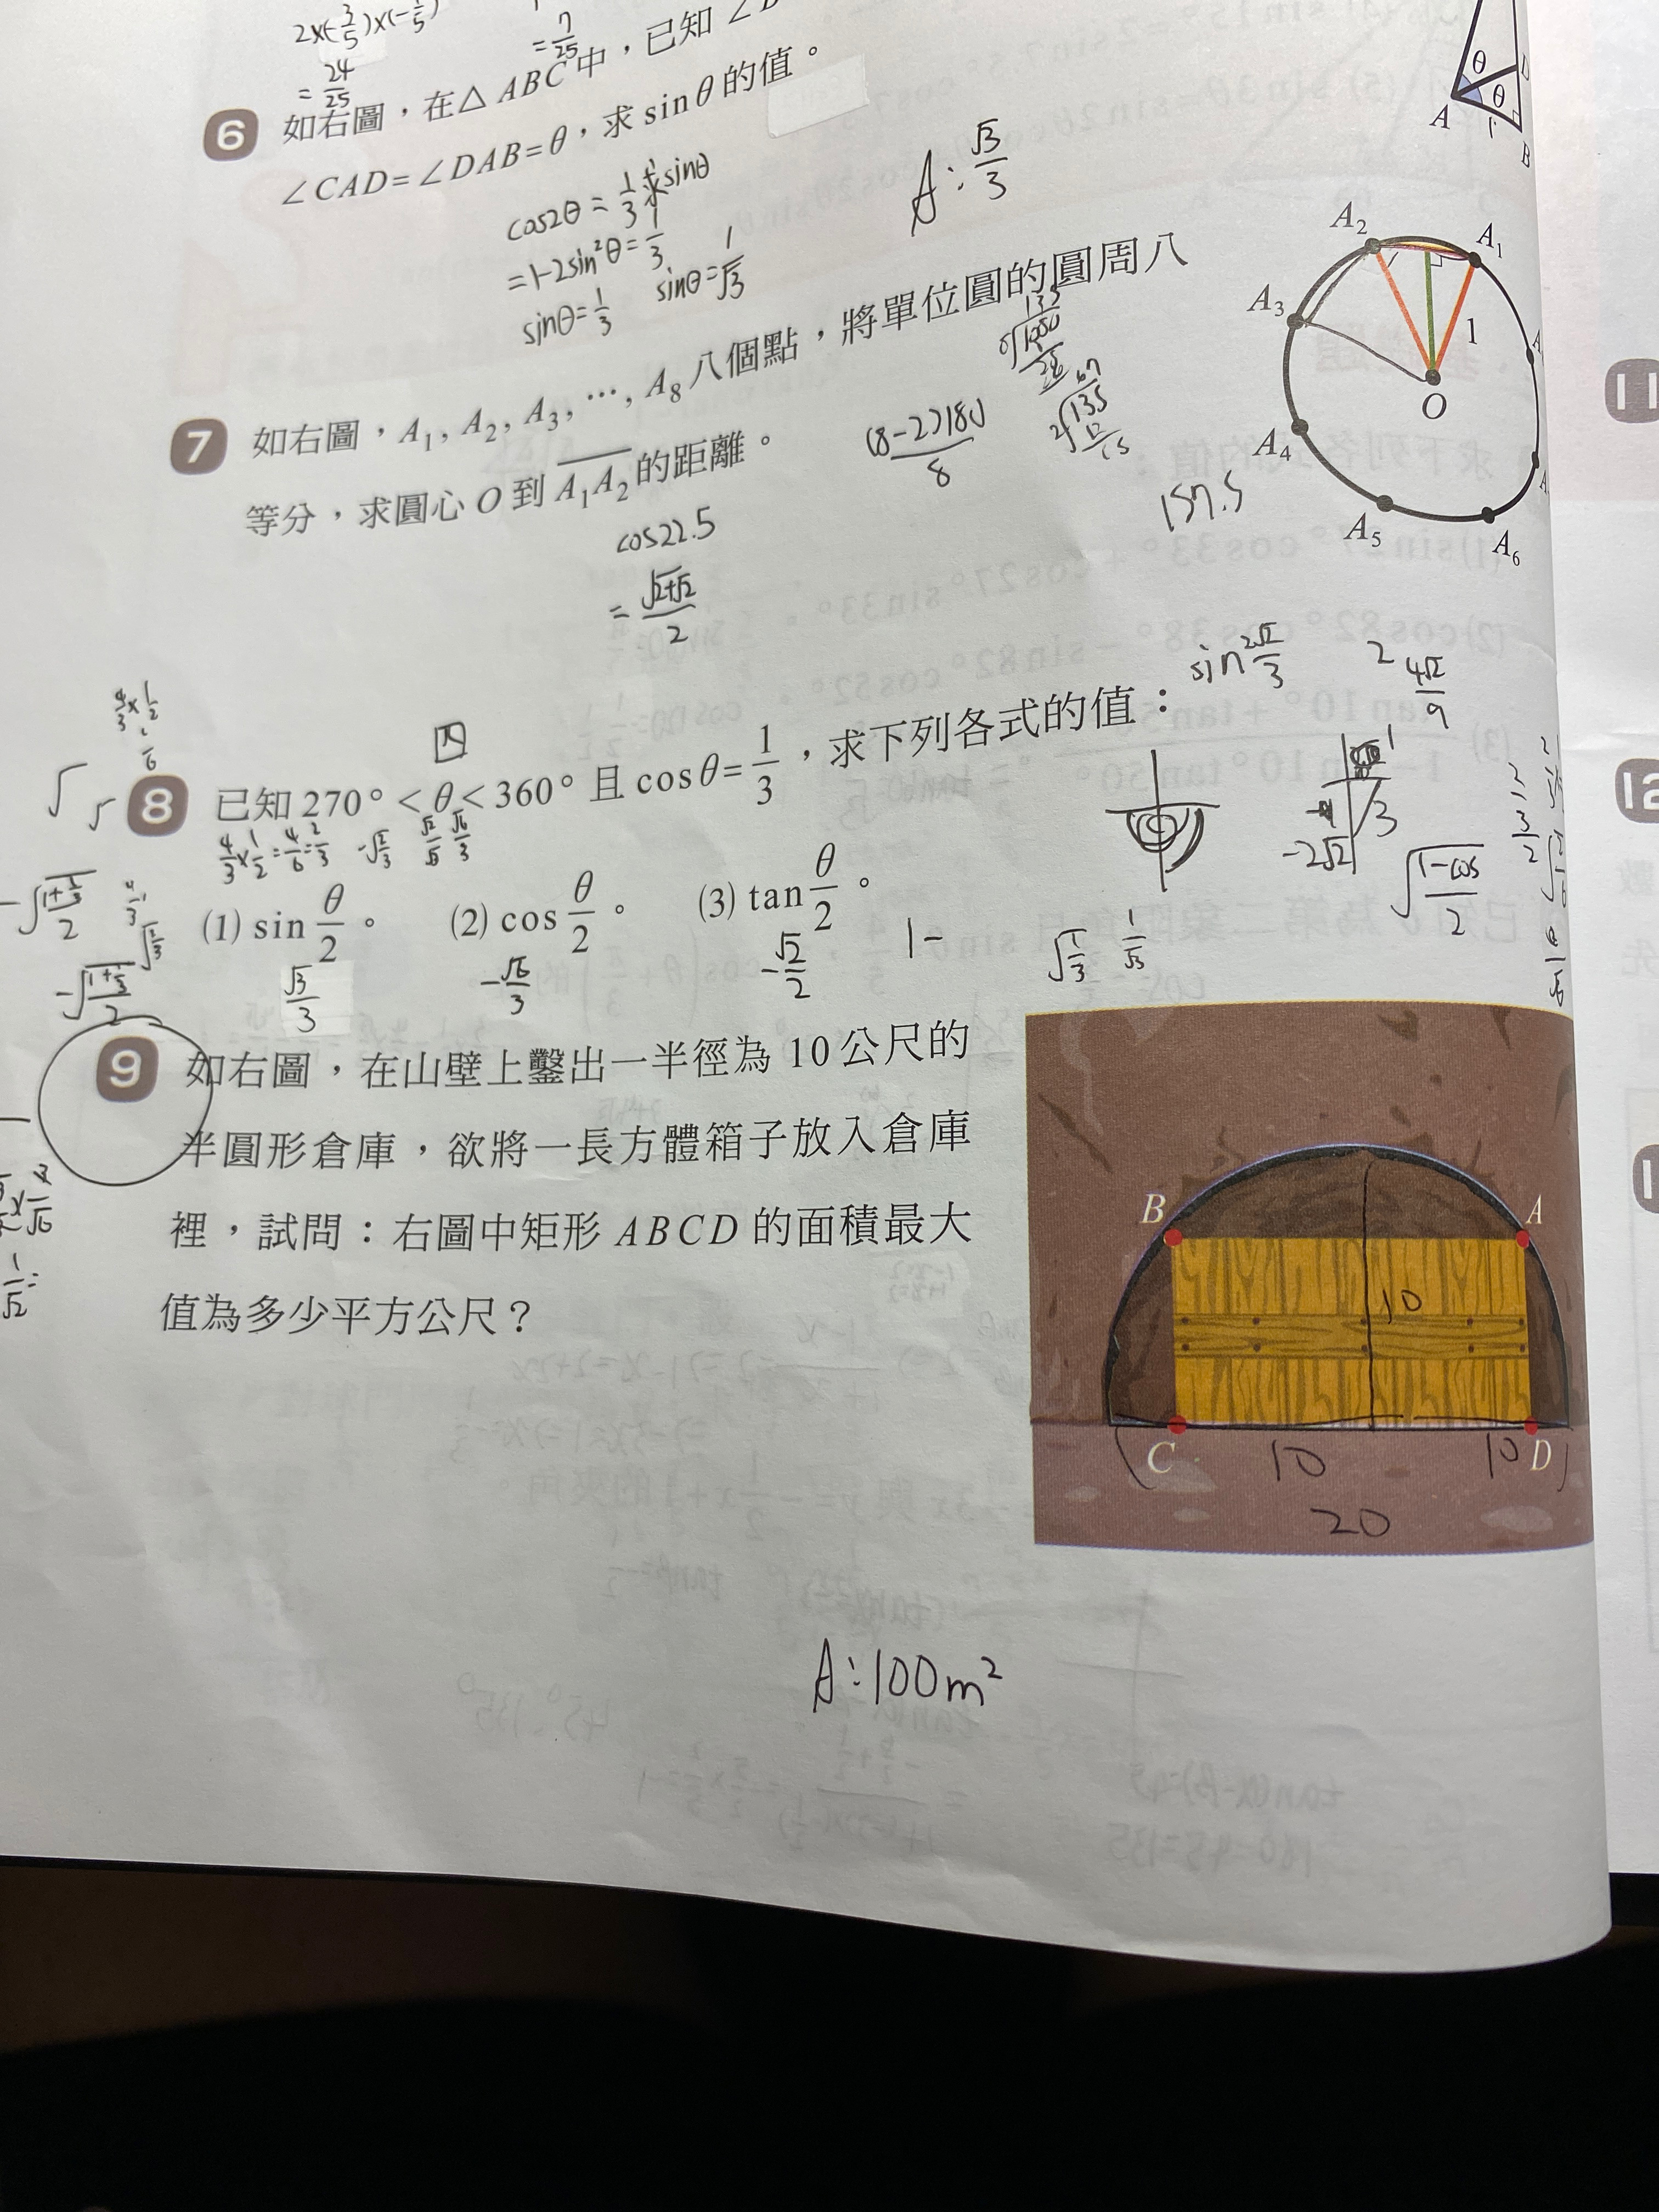 2×(-3/5)×(-4/5)
= 24/25
= 7/25
6 如右圖，在△ABC中，已知∠
∠CAD=∠DAB=θ，求 sinθ 的值。
cos2θ = 1/3 求sinθ
=1-2sin²θ = 1/3
sinθ = 1/3 sinθ = 1/√3
A: √3/3
A
θ
θ
1
B
7 如右圖，A₁, A₂, A₃, …, A₈ 八個點，將單位圓的圓周八
等分，求圓心 O 到 A₁A₂ 的距離。
cos22.5
= √(2+√2)/2
(8-2)180/8
135
157.5
A₂
A₁
A₃
1
O
A₄
A₅
A₆
四
8 已知 270°<θ<360° 且 cosθ=1/3，求下列各式的值：
4/3×1/2=4/6=2/3 -√2/3 √2/√3 √6/3
(1) sin θ/2。 (2) cos θ/2。 (3) tan θ/2。
√3/3 -√6/3 -√2/2
1-
√(1/3) 1/√3
sin 2√2/3
2 4√2/9
-2√2
3
√((1-cos)/2)
9 如右圖，在山壁上鑿出一半徑為 10 公尺的
半圓形倉庫，欲將一長方體箱子放入倉庫
裡，試問：右圖中矩形 ABCD 的面積最大
值為多少平方公尺？
B
A
10
C
10
10
D
20
A:100m²
11
12